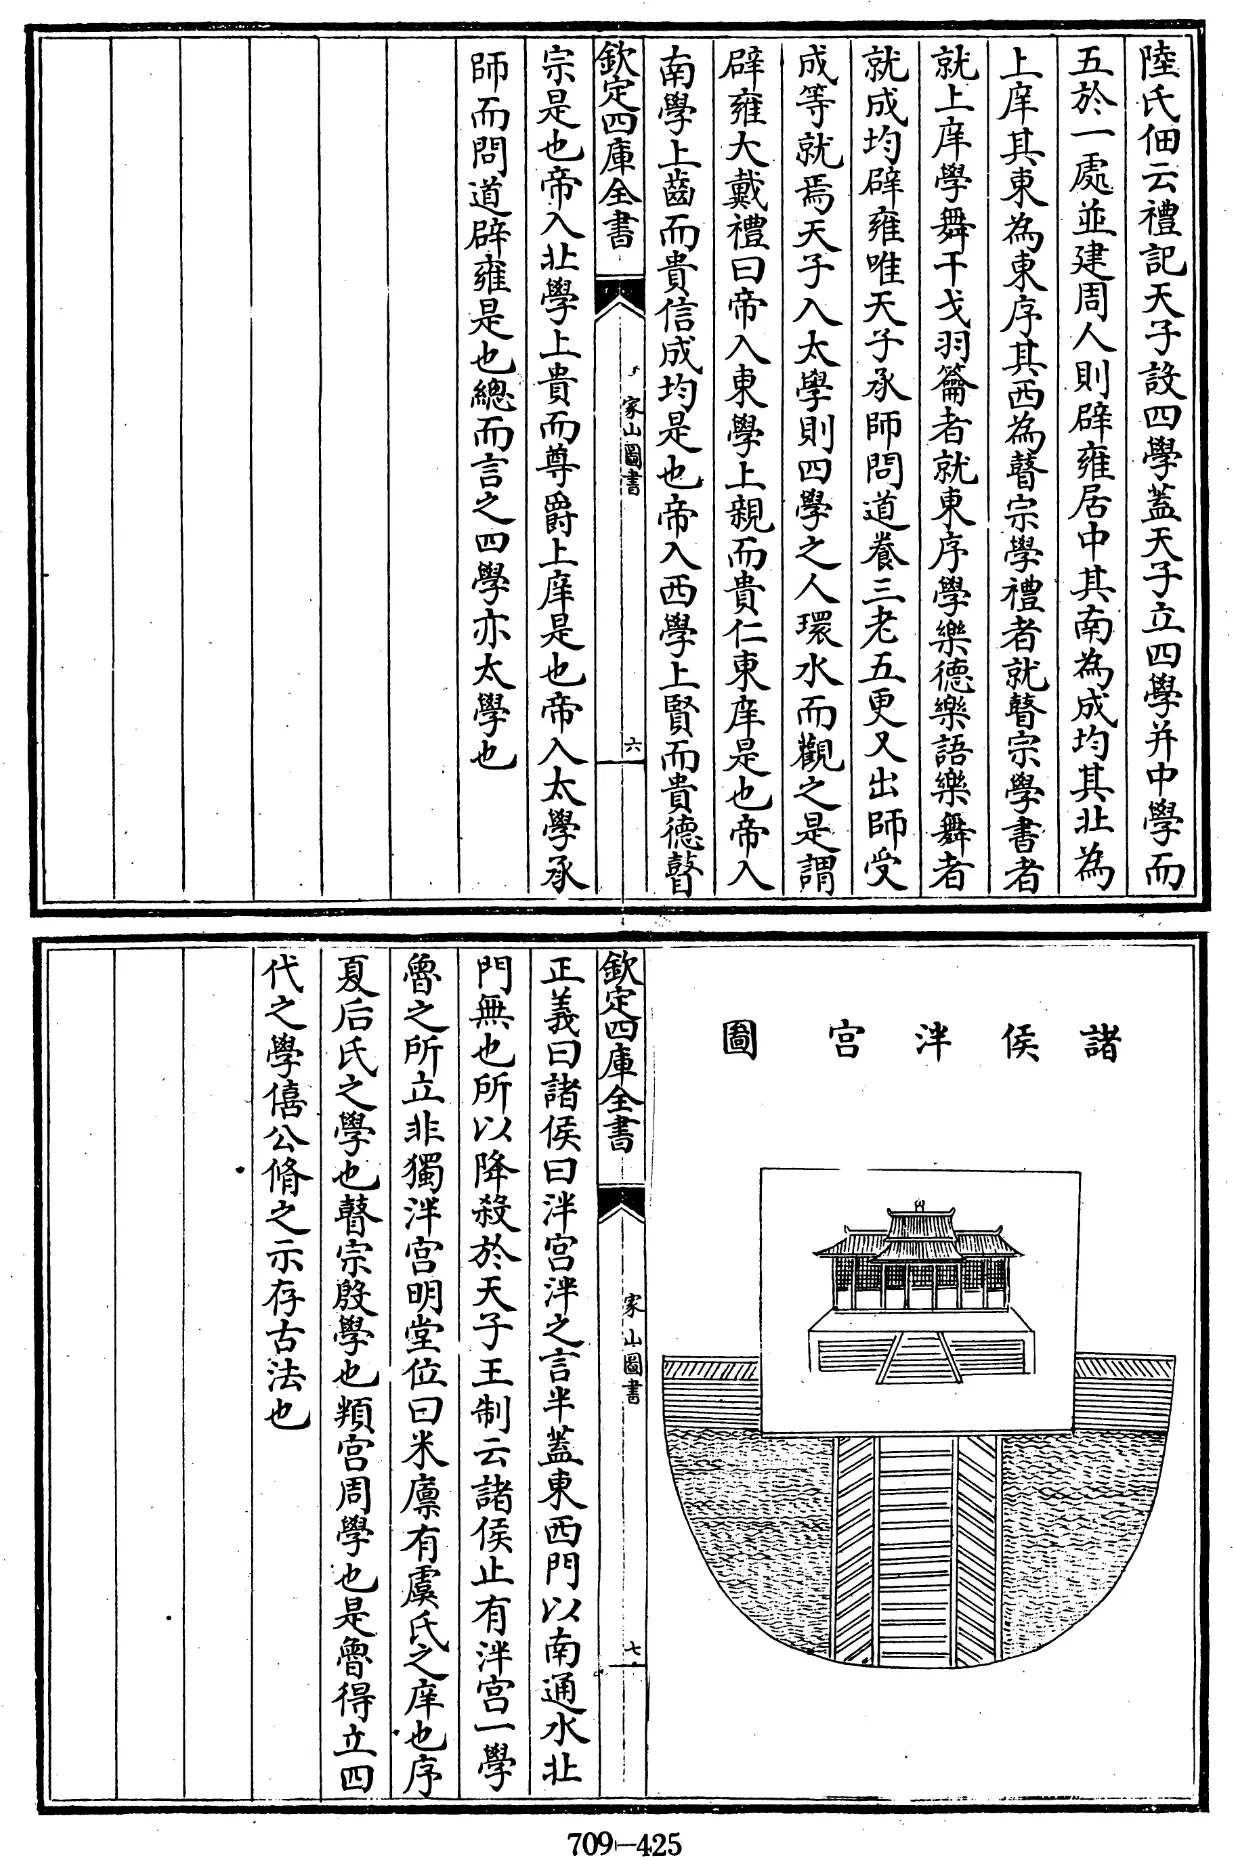 陸氏佃云禮記天子設四學蓋天子立四學并中學而
五於一處並建周人則辟雍居中其南為成均其北為
上庠其東為東序其西為瞽宗學禮者就瞽宗學書者
就上庠學舞干戈羽籥者就東序學樂德樂語樂舞者
就成均辟雍唯天子承師問道養三老五更又出師受
成等就焉天子入太學則四學之人環水而觀之是謂
辟雍大戴禮曰帝入東學上親而貴仁東庠是也帝入
南學上齒而貴信成均是也帝入西學上賢而貴德瞽
欽定四庫全書
家山圖書
六
宗是也帝入北學上貴而尊爵上庠是也帝入太學承
師而問道辟雍是也總而言之四學亦太學也
諸侯泮宮圖
欽定四庫全書
家山圖書
七
正義曰諸侯曰泮宮泮之言半蓋東西門以南通水北
門無也所以降殺於天子王制云諸侯止有泮宮一學
魯之所立非獨泮宮明堂位曰米廩有虞氏之庠也序
夏后氏之學也瞽宗殷學也頖宮周學也是魯得立四
代之學僖公脩之示存古法也
709-425